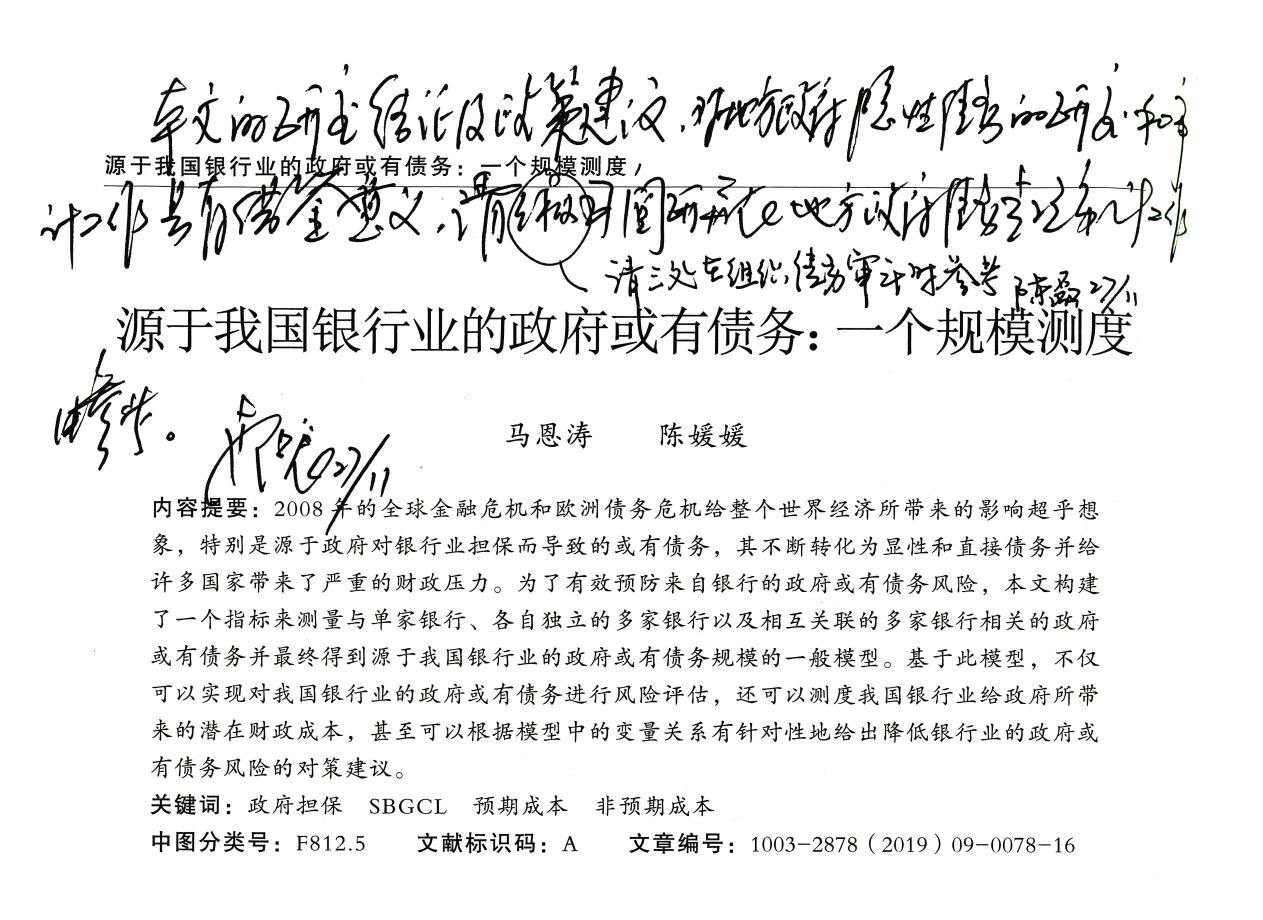 本文的研究结论及政策建议，对地方政府隐性债务的研究和审
源于我国银行业的政府或有债务：一个规模测度
计工作具有借鉴意义，请 地方政府债务 审计工作
请三处在组织债务审计时参考 27/11
源于我国银行业的政府或有债务：一个规模测度
参考。 27/11
马恩涛 陈媛媛
内容提要：2008 年的全球金融危机和欧洲债务危机给整个世界经济所带来的影响超乎想
象，特别是源于政府对银行业担保而导致的或有债务，其不断转化为显性和直接债务并给
许多国家带来了严重的财政压力。为了有效预防来自银行的政府或有债务风险，本文构建
了一个指标来测量与单家银行、各自独立的多家银行以及相互关联的多家银行相关的政府
或有债务并最终得到源于我国银行业的政府或有债务规模的一般模型。基于此模型，不仅
可以实现对我国银行业的政府或有债务进行风险评估，还可以测度我国银行业给政府所带
来的潜在财政成本，甚至可以根据模型中的变量关系有针对性地给出降低银行业的政府或
有债务风险的对策建议。
关键词：政府担保 SBGCL 预期成本 非预期成本
中图分类号：F812.5 文献标识码：A 文章编号：1003-2878（2019）09-0078-16